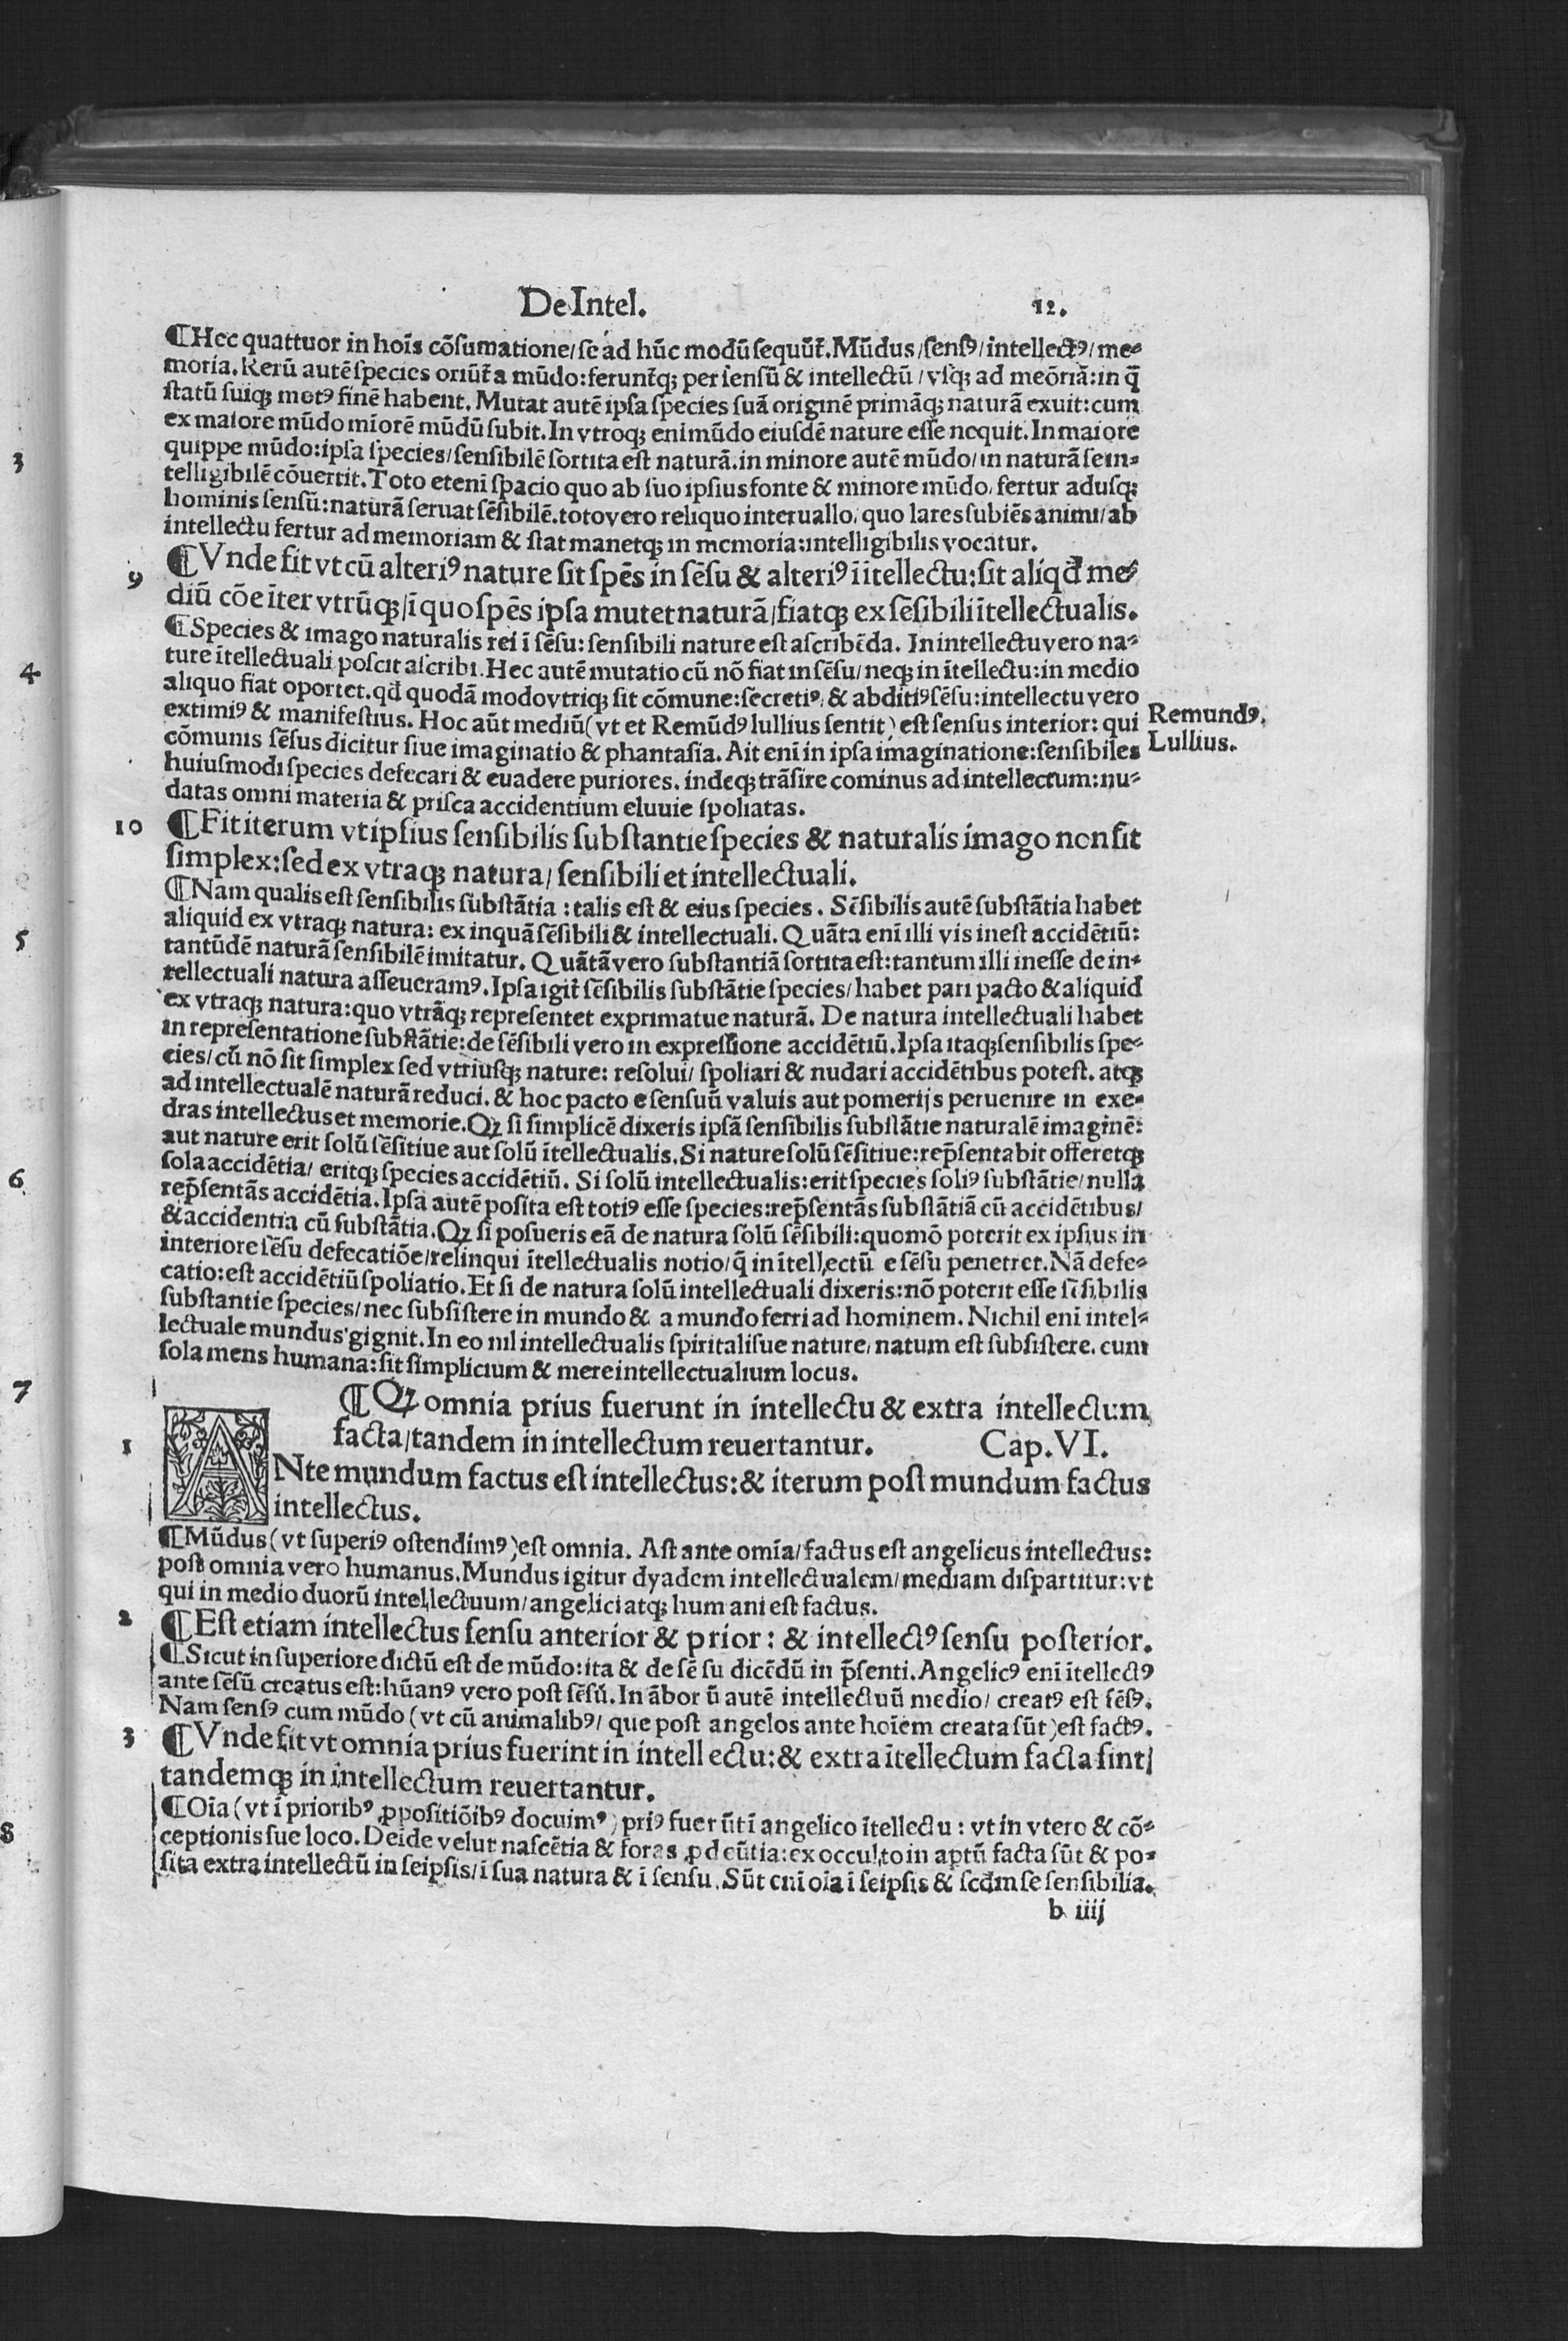 De Intel. 12.
¶Hec quattuor in hoīs cōsumatione/ se ad hūc modū sequūt̃. Mūdus/ sensꝰ/ intellectꝰ/ me-
moria. Rerū autē species oriūt̃ a mūdo: ferunt̃qꝫ per sensū & intellectū/ vsqꝫ ad meōriā: in q̄
statū suiqꝫ motꝰ finē habent. Mutat autē ipsa species suā originē primāqꝫ naturā exuit: cum
ex maiore mūdo miorē mūdū subit. In vtroqꝫ eni mūdo eiusdē nature esse nequit. In maiore
quippe mūdo: ipsa species/ sensibilē sortita est naturā. in minore autē mūdo/ in naturā se in-
telligibilē cōuertit. Toto eteni spacio quo ab suo ipsius fonte & minore mūdo, fertur adusqꝫ
hominis sensū: naturā seruat sēsibilē. toto vero reliquo interuallo, quo lares subiēs animi/ ab
intellectu fertur ad memoriam & stat manetqꝫ in memoria: intelligibilis vocatur.
9 ¶Vnde fit vt cū alteriꝰ nature sit spēs in sēsu & alteriꝰ i itellectu: sit aliqd̄ me-
diū cōe iter vtrūqꝫ/ ī quo spēs ipsa mutet naturā/ fiatqꝫ ex sēsibili ītellectualis.
¶Species & imago naturalis rei ī sēsu: sensibili nature est ascribēda. In intellectu vero na-
ture ītellectuali poscit ascribi. Hec autē mutatio cū nō fiat in sēsu/ neqꝫ in ītellectu: in medio
aliquo fiat oportet. qd̄ quodā modo vtriqꝫ sit cōmune: secretiꝰ, & abditiꝰ sēsu: intellectu vero
extimiꝰ & manifestius. Hoc aūt mediū (vt et Remūdꝰ lullius sentit) est sensus interior: qui
Remundꝰ,
Lullius.
cōmunis sēsus dicitur siue imaginatio & phantasia. Ait enī in ipsa imaginatione: sensibiles
huiusmodi species defecari & euadere puriores. indeqꝫ trāsire cominus ad intellectum: nu-
datas omni materia & prisca accidentium eluuie spoliatas.
10 ¶Fit iterum vt ipsius sensibilis substantie species & naturalis imago non sit
simplex: sed ex vtraqꝫ natura/ sensibili et intellectuali.
¶Nam qualis est sensibilis substātia: talis est & eius species. Sēsibilis autē substātia habet
aliquid ex vtraqꝫ natura: ex inquā sēsibili & intellectuali. Quāta enī illi vis inest accidētiū:
tantūdē naturā sensibilē imitatur. Quātā vero substantiā sortita est: tantum illi inesse de in-
tellectuali natura asseueramꝰ. Ipsa igit̃ sēsibilis substātie species/ habet pari pacto & aliquid
ex vtraqꝫ natura: quo vtrāqꝫ representet exprimatue naturā. De natura intellectuali habet
in representatione substātie: de sēsibili vero in expressione accidētiū. Ipsa itaqꝫ sensibilis spe-
cies/ cū nō sit simplex sed vtriusqꝫ nature: resolui/ spoliari & nudari accidētibus potest. atqꝫ
ad intellectualē naturā reduci. & hoc pacto e sensuū valuis aut pomerijs peruenire in exe-
dras intellectus et memorie. Qꝫ si simplicē dixeris ipsā sensibilis substātie naturalē imaginē:
aut nature erit solū sēsitiue aut solū ītellectualis. Si nature solū sēsitiue: rep̄sentabit offeretqꝫ
sola accidētia/ eritqꝫ species accidētiū. Si solū intellectualis: erit species soliꝰ substātie/ nulla
rep̄sentās accidētia. Ipsa autē posita est totiꝰ esse species: rep̄sentās substātiā cū accidētibus/
& accidentia cū substātia. Qꝫ si posueris eā de natura solū sēsibili: quomō poterit ex ipsius in
interiore sēsu defecatiōe/ relinqui ītellectualis notio/ q̄ in ītellectū e sēsu penetret. Nā defe-
catio: est accidētiū spoliatio. Et si de natura solū intellectuali dixeris: nō poterit esse sēsibilis
substantie species/ nec subsistere in mundo & a mundo ferri ad hominem. Nichil eni intel-
lectuale mundus gignit. In eo nil intellectualis spiritalisue nature, natum est subsistere. cum
sola mens humana: sit simplicium & mere intellectualium locus.
¶Qꝫ omnia prius fuerunt in intellectu & extra intellectum
facta/ tandem in intellectum reuertantur. Cap. VI.
1 ANte mundum factus est intellectus: & iterum post mundum factus
intellectus.
¶Mūdus (vt superiꝰ ostendimꝰ) est omnia. Ast ante omīa/ factus est angelicus intellectus:
post omnia vero humanus. Mundus igitur dyadem intellectualem/ mediam dispartitur: vt
qui in medio duorū intellectuum/ angelici atqꝫ humani est factus.
2 ¶Est etiam intellectus sensu anterior & prior: & intellectꝰ sensu posterior.
¶Sicut in superiore dictū est de mūdo: ita & de sēsu dicēdū in p̄senti. Angelicꝰ enī ītellectꝰ
ante sēsū creatus est: hūanꝰ vero post sēsū. In ābor ū autē intellectuū medio/ creatꝰ est sēsꝰ.
Nam sensꝰ cum mūdo (vt cū animalibꝰ/ que post angelos ante hoīem creata sūt) est factꝰ.
3 ¶Vnde fit vt omnia prius fuerint in intellectu: & extra ītellectum facta sint/
tandemqꝫ in intellectum reuertantur.
¶Oīa (vt ī prioribꝰ ꝓpositiōibꝰ docuimꝰ) priꝰ fuerūt ī angelico ītellectu: vt in vtero & cō-
ceptionis sue loco. Deīde velut nascētia & foras ꝓdeūtia: ex occulto in aptū facta sūt & po-
sita extra intellectū in seipsis/ ī sua natura & ī sensu. Sūt enī oīa ī seipsis & scd̄m se sensibilia.
b iiij
3
4
5
6
7
8